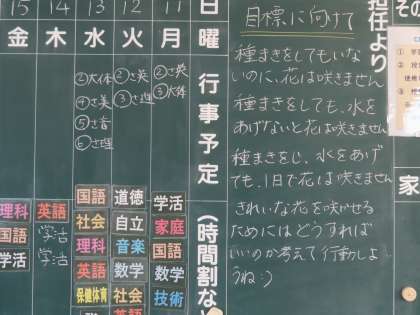 担任より
目標に向けて
種まきをしてもいな
いのに、花は咲きません
種まきをしても、水を
あげないと花は咲きません
種まきをし、水をあげ
ても、1日で花は咲きません
きれいな花を咲かせる
ためにはどうすれば
いいのか考えて行動しよ
うね:)
日 11 12 13 14 15
曜 月 火 水 木 金
行事予定
②さ英
③大体
②さ英
③さ理
②大体
④さ美
⑤さ音
⑥さ理
(時間割な
学活
家庭
国語
数学
技術
道徳
自立
音楽
数学
社会
英語
国語
社会
理科
英語
保健体育
英語
学活
学活
理科
国語
学活
その
家